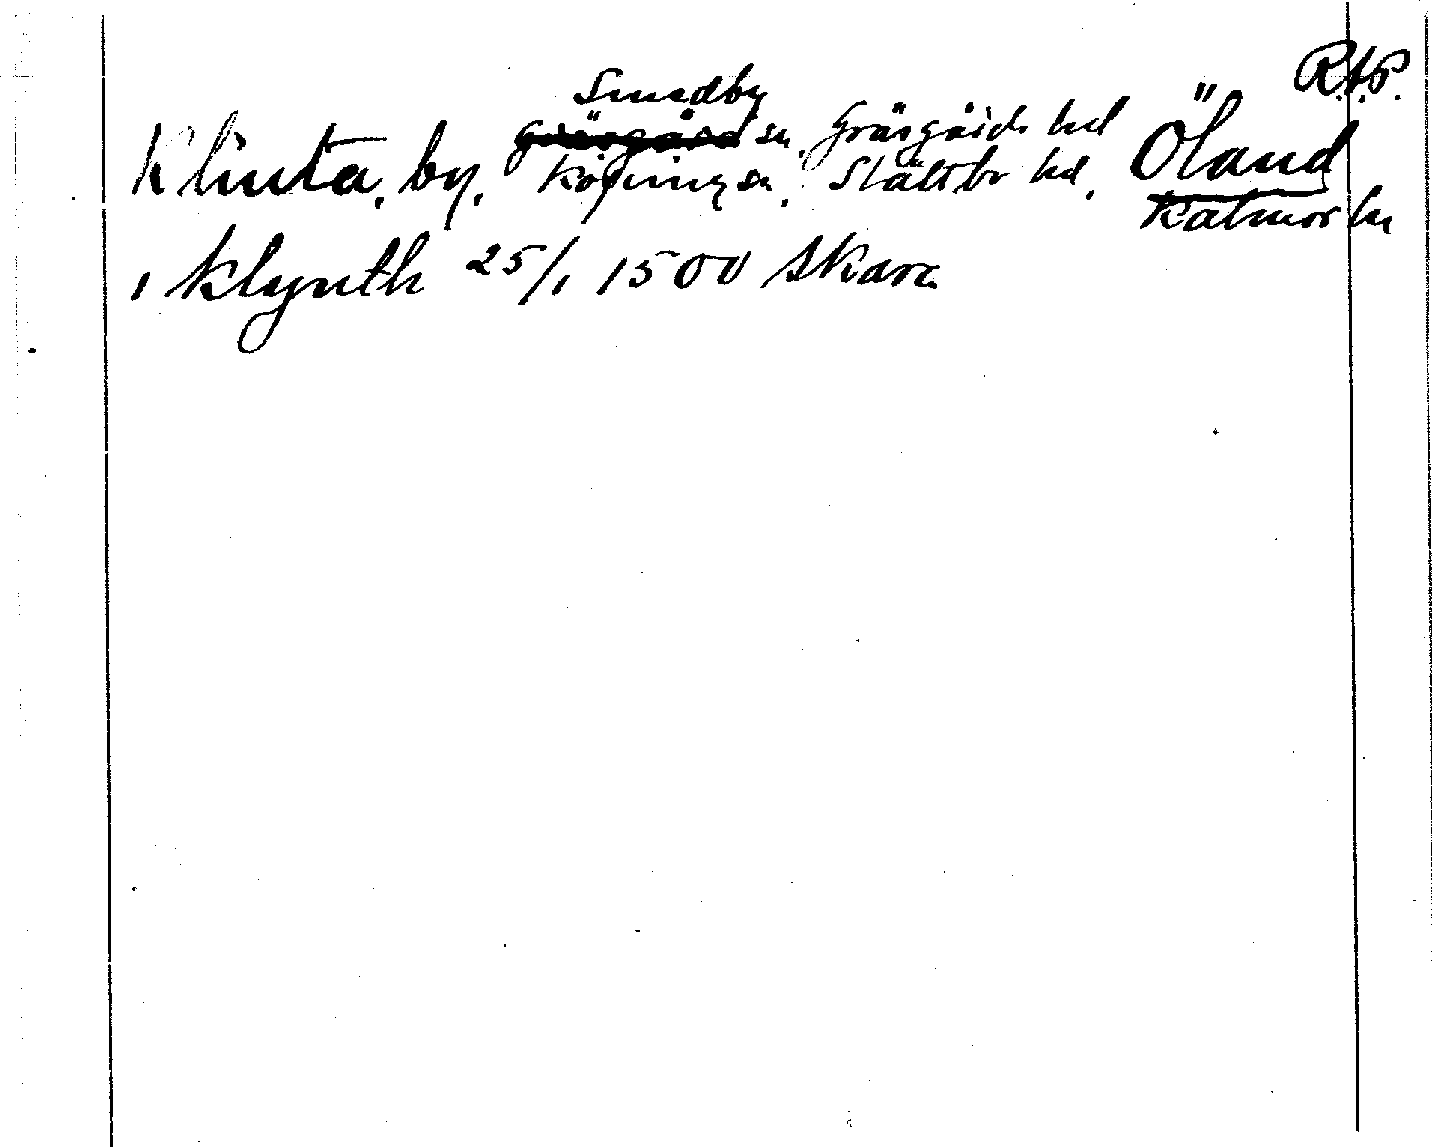 R.A.P.
Smedby
Klinta, by. Gräsgård sn. Gräsgårds hd Öland
Köping sn. Slättbo hd. Kalmar län
i Klynth 25/1 1500 Skara